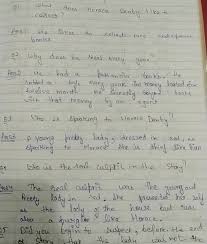 Q1 What does Horace Denby like to collect?
Ans: He loves to collect rare and expensive books.
Q2 Why does he steal every year?
Ans: He had a
robbed a safe every year. The money lasted for
twelve month. He secretly bought books
with that money by an agent
Q3 Who is speaking to Horace Denby?
Ans: A young pretty lady dressed in red, is
speaking to Horace. She is thief
Q4 Who is the real culprit in the story?
Ans: The real culprit was the young and
pretty lady in red, she pretended her self
as the lady of the house but was
also a burglar like Horace.
Q5 Did you begin to suspect, before the end
of the story that the lady was not